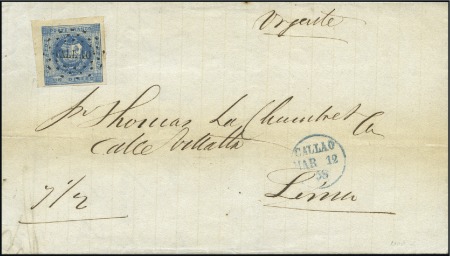 Urgente
CALLAO
Sr Thomas La Chambre & Co
Calle
CALLAO
MAR 12
58
Lima
7 1/2